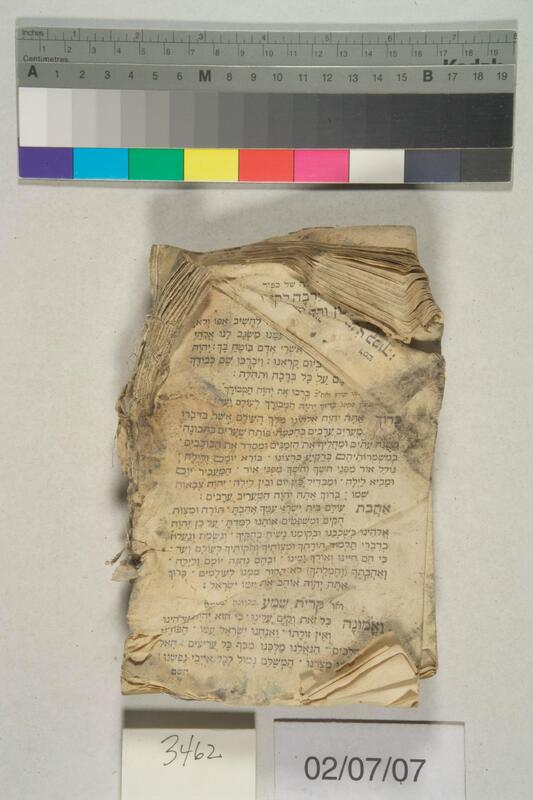 Inches 1 2 3 4 5 6 7 8
Centimetres 1 2 3 4 5 6 7 8 9 10 11 12 13 14 15 16 17 18 19
A 1 2 3 4 5 6 M 8 9 10 11 12 13 14 15 B 17 18 19
של כפור
להשיב אפו ולא
משגב לנו אלהי
אשרי אדם בוטח בך: יהוה
ביום קראנו: ויברכו שם כבודך
על כל ברכה ותהלה:
ברכו את יהוה המבורך
ברוך יהוה המבורך לעולם ועד
ברוך אתה יהוה אלהינו מלך העולם אשר בדברו
מעריב ערבים בחכמה פותח שערים בתבונה
משנה עתים ומחליף את הזמנים ומסדר את הכוכבים
במשמרותיהם ברקיע כרצונו · בורא יומם ולילה ·
גולל אור מפני חשך וחשך מפני אור · המעביר יום
ומביא לילה · ומבדיל בין יום ובין לילה · יהוה צבאות
שמו: ברוך אתה יהוה המעריב ערבים:
אהבת עולם בית ישראל עמך אהבת · תורה ומצות
חקים ומשפטים אותנו למדת · על כן יהוה
אלהינו בשכבנו ובקומנו נשיח בחקיך · ונשמח ונעלוז
בדברי תלמוד תורתך ומצותיך וחקותיך לעולם ועד ·
כי הם חיינו ואורך ימינו · ובהם נהגה יומם ולילה ·
ואהבתך לא תסור ממנו לעולמים · ברוך
אתה יהוה אוהב את עמו ישראל:
קרית שמע
ואמונה כל זאת וקים עלינו · כי הוא יהוה אלהינו
ואין זולתו · ואנחנו ישראל עמו · הפודנו
מלכים · הגואלנו מלכנו מכף כל עריצים · האל
מצרינו · המשלם גמול לכל אויבי נפשנו ·
השם
3462
02/07/07